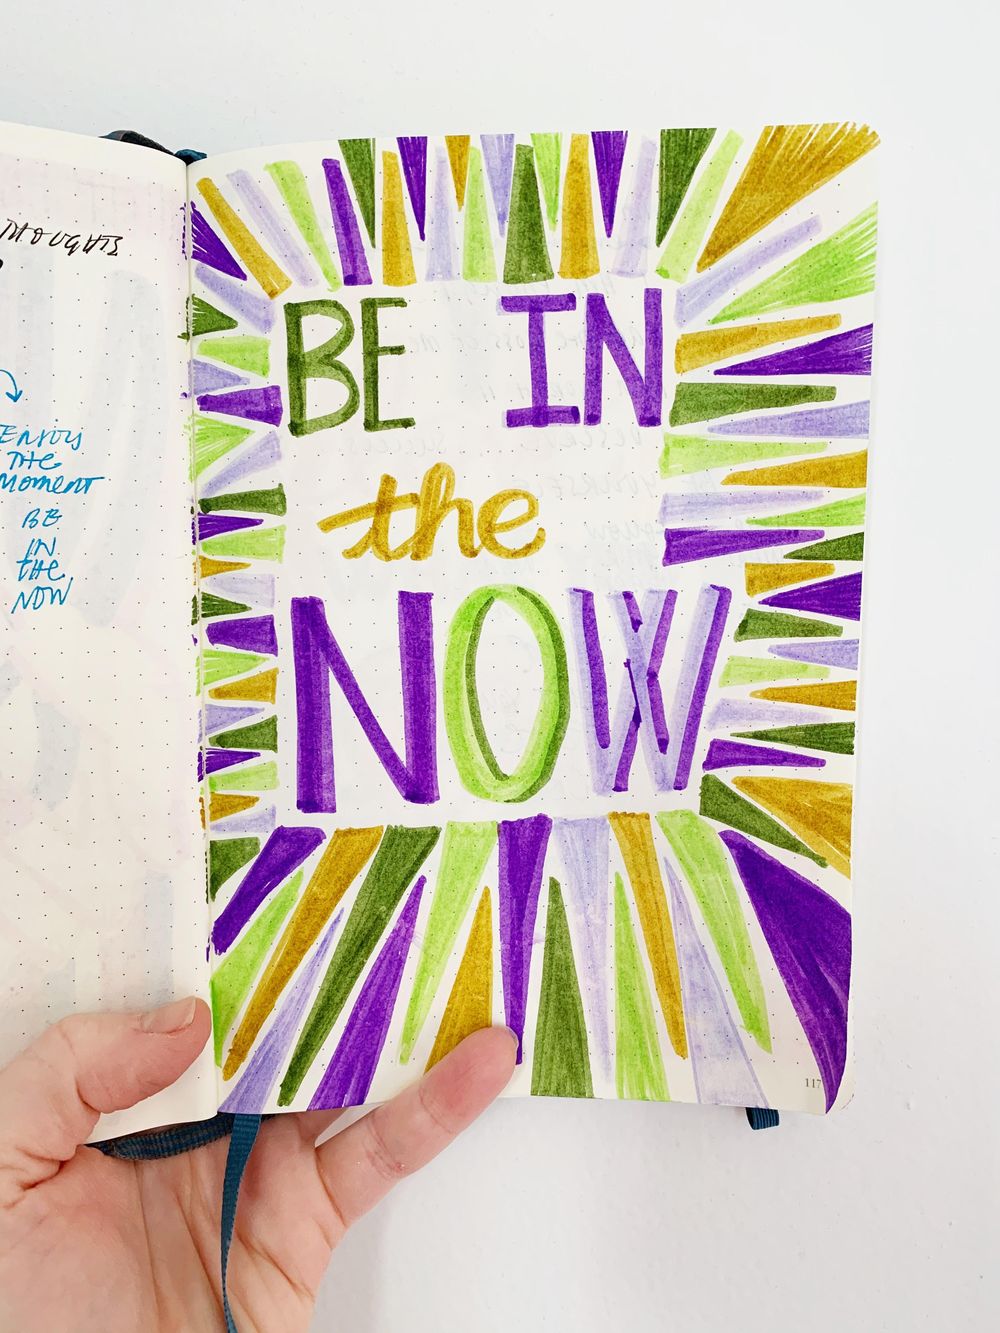 THOUGHTS
ENJOY
THE
MOMENT
BE
IN
THE
NOW
BE IN
the
NOW
117